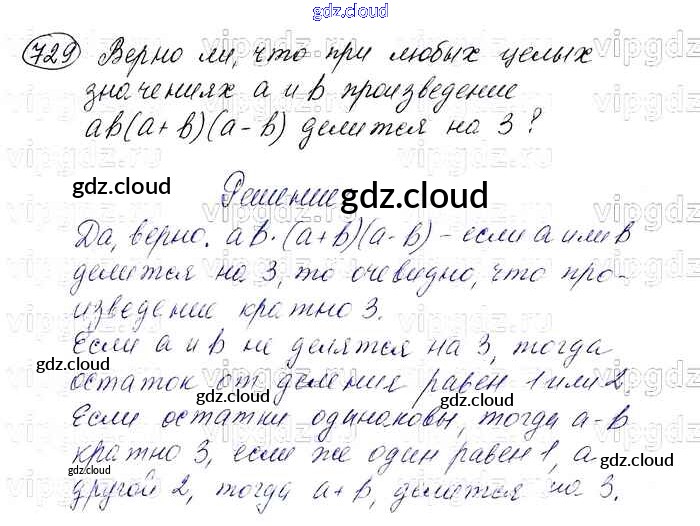 gdz.cloud
729 Верно ли, что при любых целых
значениях a и b произведение
ab(a+b)(a-b) делится на 3?
gdz.cloud
Решение gdz.cloud
Да, верно. ab·(a+b)(a-b) - если a или b
делится на 3, то очевидно, что про-
изведение кратно 3.
Если a и b не делятся на 3, тогда
gdz.cloud
остаток от деления равен 1 или 2
gdz.cloud
Если остатки одинаковы, тогда a-b
gdz.cloud
кратно 3, если же один равен 1, а
gdz.cloud
gdz.cloud
другой 2, тогда a+b, делится на 3.
gdz.cloud